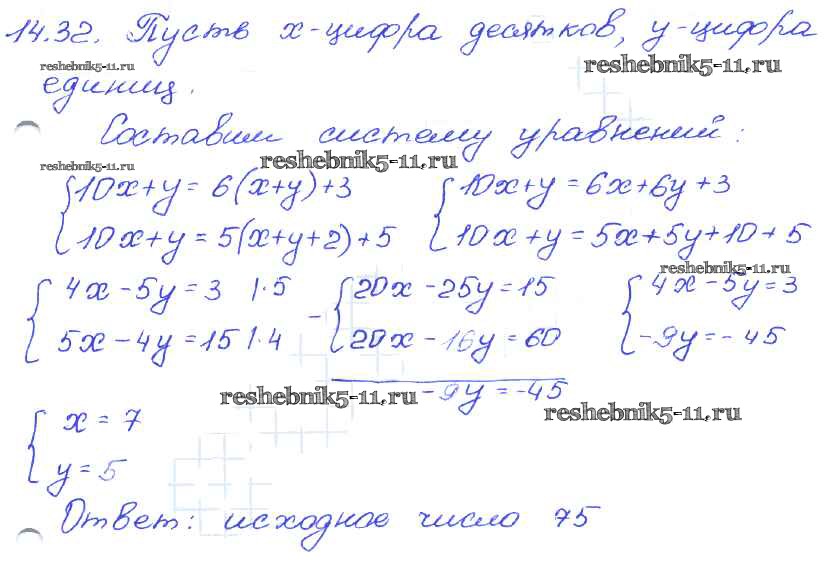 14.32. Пусть x-цифра десятков, y-цифра
reshebnik5-11.ru reshebnik5-11.ru
единиц.
Составим систему уравнений:
reshebnik5-11.ru reshebnik5-11.ru
{10x+y=6(x+y)+3 {10x+y=6x+6y+3
{10x+y=5(x+y+2)+5 {10x+y=5x+5y+10+5
reshebnik5-11.ru
{4x-5y=3 |·5 -{20x-25y=15 {4x-5y=3
{5x-4y=15 |·4 {20x-16y=60 {-9y=-45
reshebnik5-11.ru -9y=-45 reshebnik5-11.ru
{x=7
{y=5
Ответ: исходное число 75